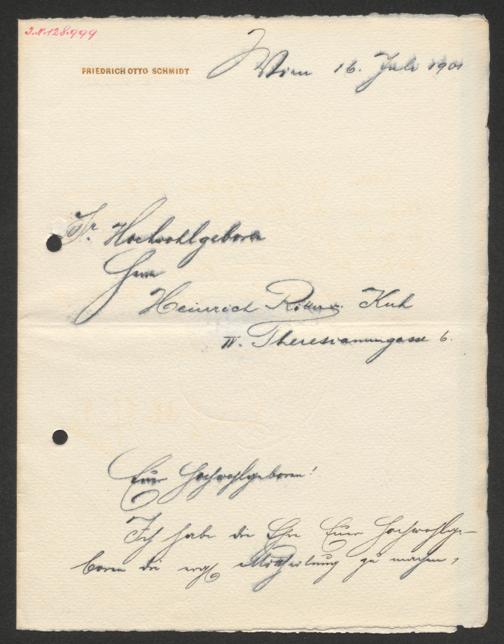 J.N. 128.999
FRIEDRICH OTTO SCHMIDT
Wien 16. Juli 1901
Sr. Hochwohlgeboren
Herrn
Heinrich Ritter v. Kuh
IV. Theresianumgasse 6.
Euer Hochwohlgeboren!
Ich habe die Ehre Euer Hochwohlge-
boren die erg. Mittheilung zu machen,